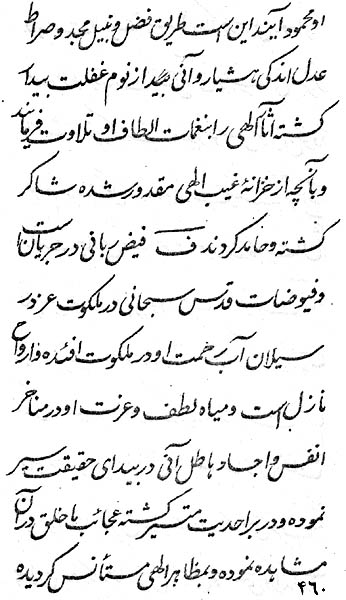 او محمود آیند این است طریق فضل و نیل مجد و صراط
عدل اندکی هشیار و آنی بیدار از نوم غفلت بیدار
گشته آثار الهی را بنغمات الطاف او تلاوت فرمایند
و بآنچه از خزانهٔ غیب الهی مقدور شده شاکر
گشته و حامد گردند ف فیض ربانی در جریان است
و فیوضات قدس سبحانی در ملکوت عز در
سیلان آب رحمت او در ملکوت افئده و ارواح
نازل است و میاه لطف و عزت او در مناخر
انفس و اجساد هاطل آنی در بیدای حقیقت سیر
نموده و در بر احدیت متسیر گشته عجائب ما خلق در آن
مشاهده نموده و بمظاهر الهی مستأنس گردیده
۴۶۰